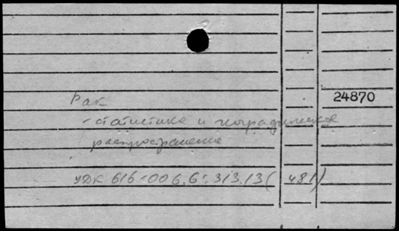 Рак
24870
- статистика и географическое
распространение
УДК 616-006.6:313.13(481)